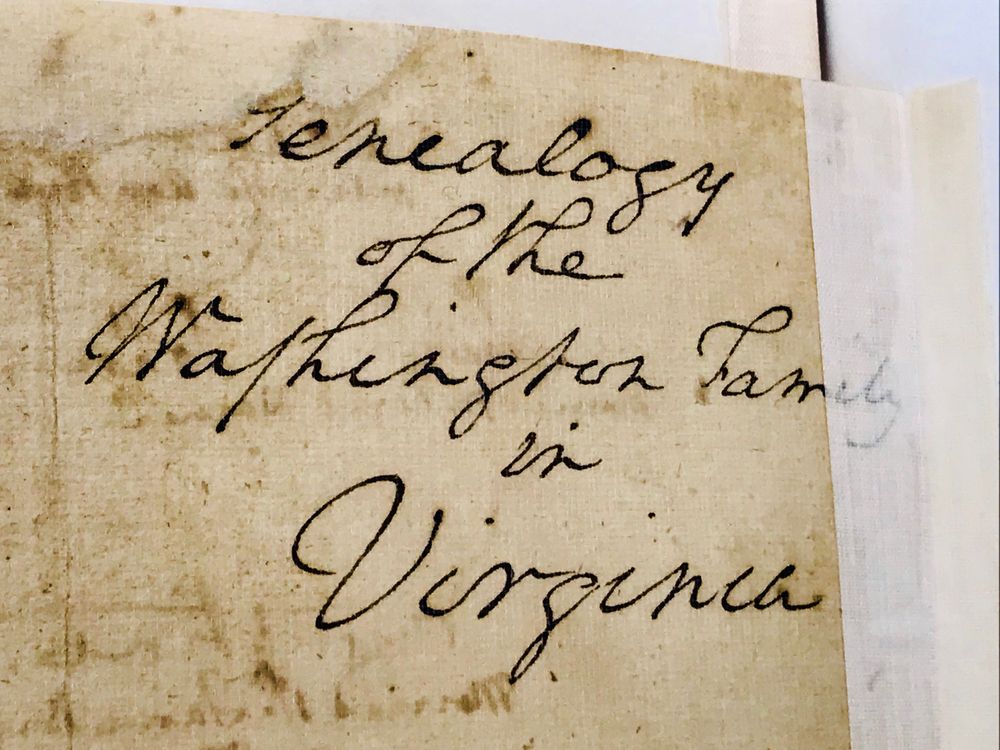 Genealogy
of the
Waſhington Family
in
Virginia